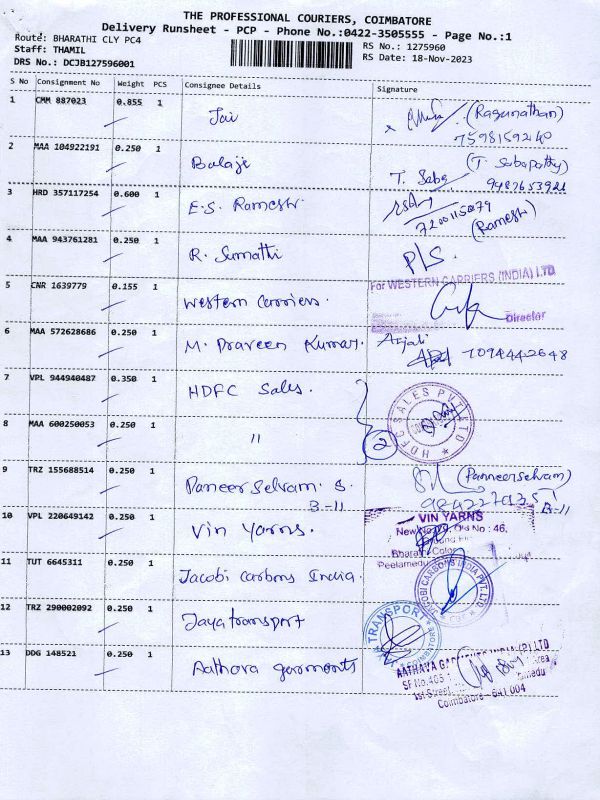 THE PROFESSIONAL COURIERS, COIMBATORE
Delivery Runsheet - PCP - Phone No.:0422-3505555 - Page No.:1
Route: BHARATHI CLY PC4
RS No.: 1275960
Staff: THAMIL
RS Date: 18-Nov-2023
DRS No.: DCJB127596001
S No Consignment No Weight PCS Consignee Details Signature
1 CMM 887023 0.855 1 Jai (Ragunathan)
7598159240
2 MAA 104922191 0.250 1 Balaji T. Saba (T. Sabapathy)
3 HRD 357117254 0.600 1 E.S. Ramesh
(Ramesh)
4 MAA 943761281 0.250 1 R. Sumathi P/S.
For WESTERN CARRIERS (INDIA) LTD
5 CNR 1639779 0.155 1 Western Carriers.
Director
6 MAA 572628686 0.250 1 M. Praveen Kumar. Anjali
7 VPL 944940487 0.350 1 HDFC Sales.
HDFC SALES PVT LTD
8 MAA 600250053 0.250 1 " 2
9 TRZ 155688514 0.250 1 Paneer Selvam. S. (Panneerselvam)
B-11 B-11
10 VPL 220649142 0.250 1 Vin Yarns. VIN YARNS
Old No : 46,
11 TUT 6645311 0.250 1 Jacobi Carbons India.
JACOBI CARBONS INDIA PVT. LTD
12 TRZ 290002092 0.250 1 Jaya transport
TRANSPORT
COIMBATORE
13 DDG 148521 0.250 1 Aathava garments
1st Street
Coimbatore - 641 004